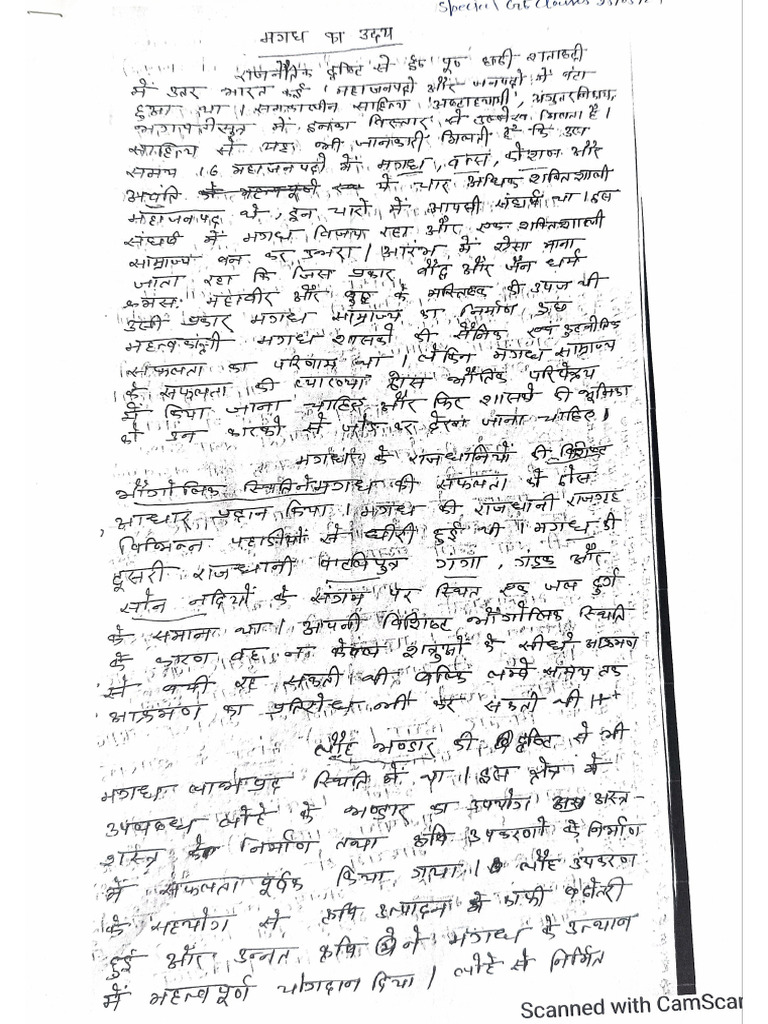 Special
मगध का उदय
राजनैतिक दृष्टि से ई० पू० छठी शताब्दी
में उत्तर भारत कई महाजनपदों और जनपदों में बंटा
हुआ था। समकालीन साहित्य अष्टाध्यायी, अंगुतरनिकाय,
भगवतीसूत्र में इनका विस्तार से उल्लेख मिलता है।
साहित्य से यह भी जानकारी मिलती है कि उस
समय 16 महाजनपदों में मगध, वत्स, कोशल और
अवंति में चार अधिक शक्तिशाली
महाजनपद थे, इन चारों में आपसी संघर्ष था। इस
संघर्ष में मगध विजयी रहा और एक शक्तिशाली
साम्राज्य बन कर उभरा। आरंभ में ऐसा माना
जाता रहा कि जिस प्रकार बौद्ध और जैन धर्म
क्रमसः महावीर और बुद्ध के मस्तिष्क की उपज थी
उसी प्रकार मगध साम्राज्य का निर्माण कुछ
महत्वकांक्षी मगध शासकों की सैनिक एवं कुटनीतिक
सफलता का परिणाम था। लेकिन मगध साम्राज्य
के सफलता की व्याख्या ठोस भौतिक परिप्रेक्ष्य
में किया जाना चाहिए और फिर शासकों की भूमिका
को उन कारकों से जोड़ कर देखा जाना चाहिए।
मगध के राजधानियों की विशिष्ट
भौगोलिक स्थिति ने मगध की सफलता को ठोस
आधार प्रदान किया। मगध की राजधानी राजगृह
विभिन्न पहाड़ीयों से घीरी हुई थी। मगध की
दूसरी राजधानी पाटलिपुत्र गंगा, गंडक और
सोन नदियों के संगम पर स्थित एक जल दुर्ग
के समाना था। अपनी विशिष्ट भौगोलिक स्थिति
के कारण वह न केवल शत्रुओं के सीधे आक्रमण
से बची रह सकती थी बल्कि लम्बे समय तक
आक्रमण का प्रतिरोध भी कर सकती थी।
लौह भण्डार की दृष्टि से भी
मगध लाभप्रद स्थिति में था। इस क्षेत्र में
उपलब्ध लोहे के भण्डार का उपयोग अस्त्र-
शस्त्र के निर्माण तथा कृषि उपकरणों के निर्माण
में सफलता पूर्वक किया गया। लौह उपकरण
के सहयोग से कृषि उत्पादन में काफी बढ़ोतरी
हुई और उन्नत कृषि ने मगध के उत्थान
में महत्वपूर्ण योगदान दिया। लोहे से निर्मित
Scanned with CamScan